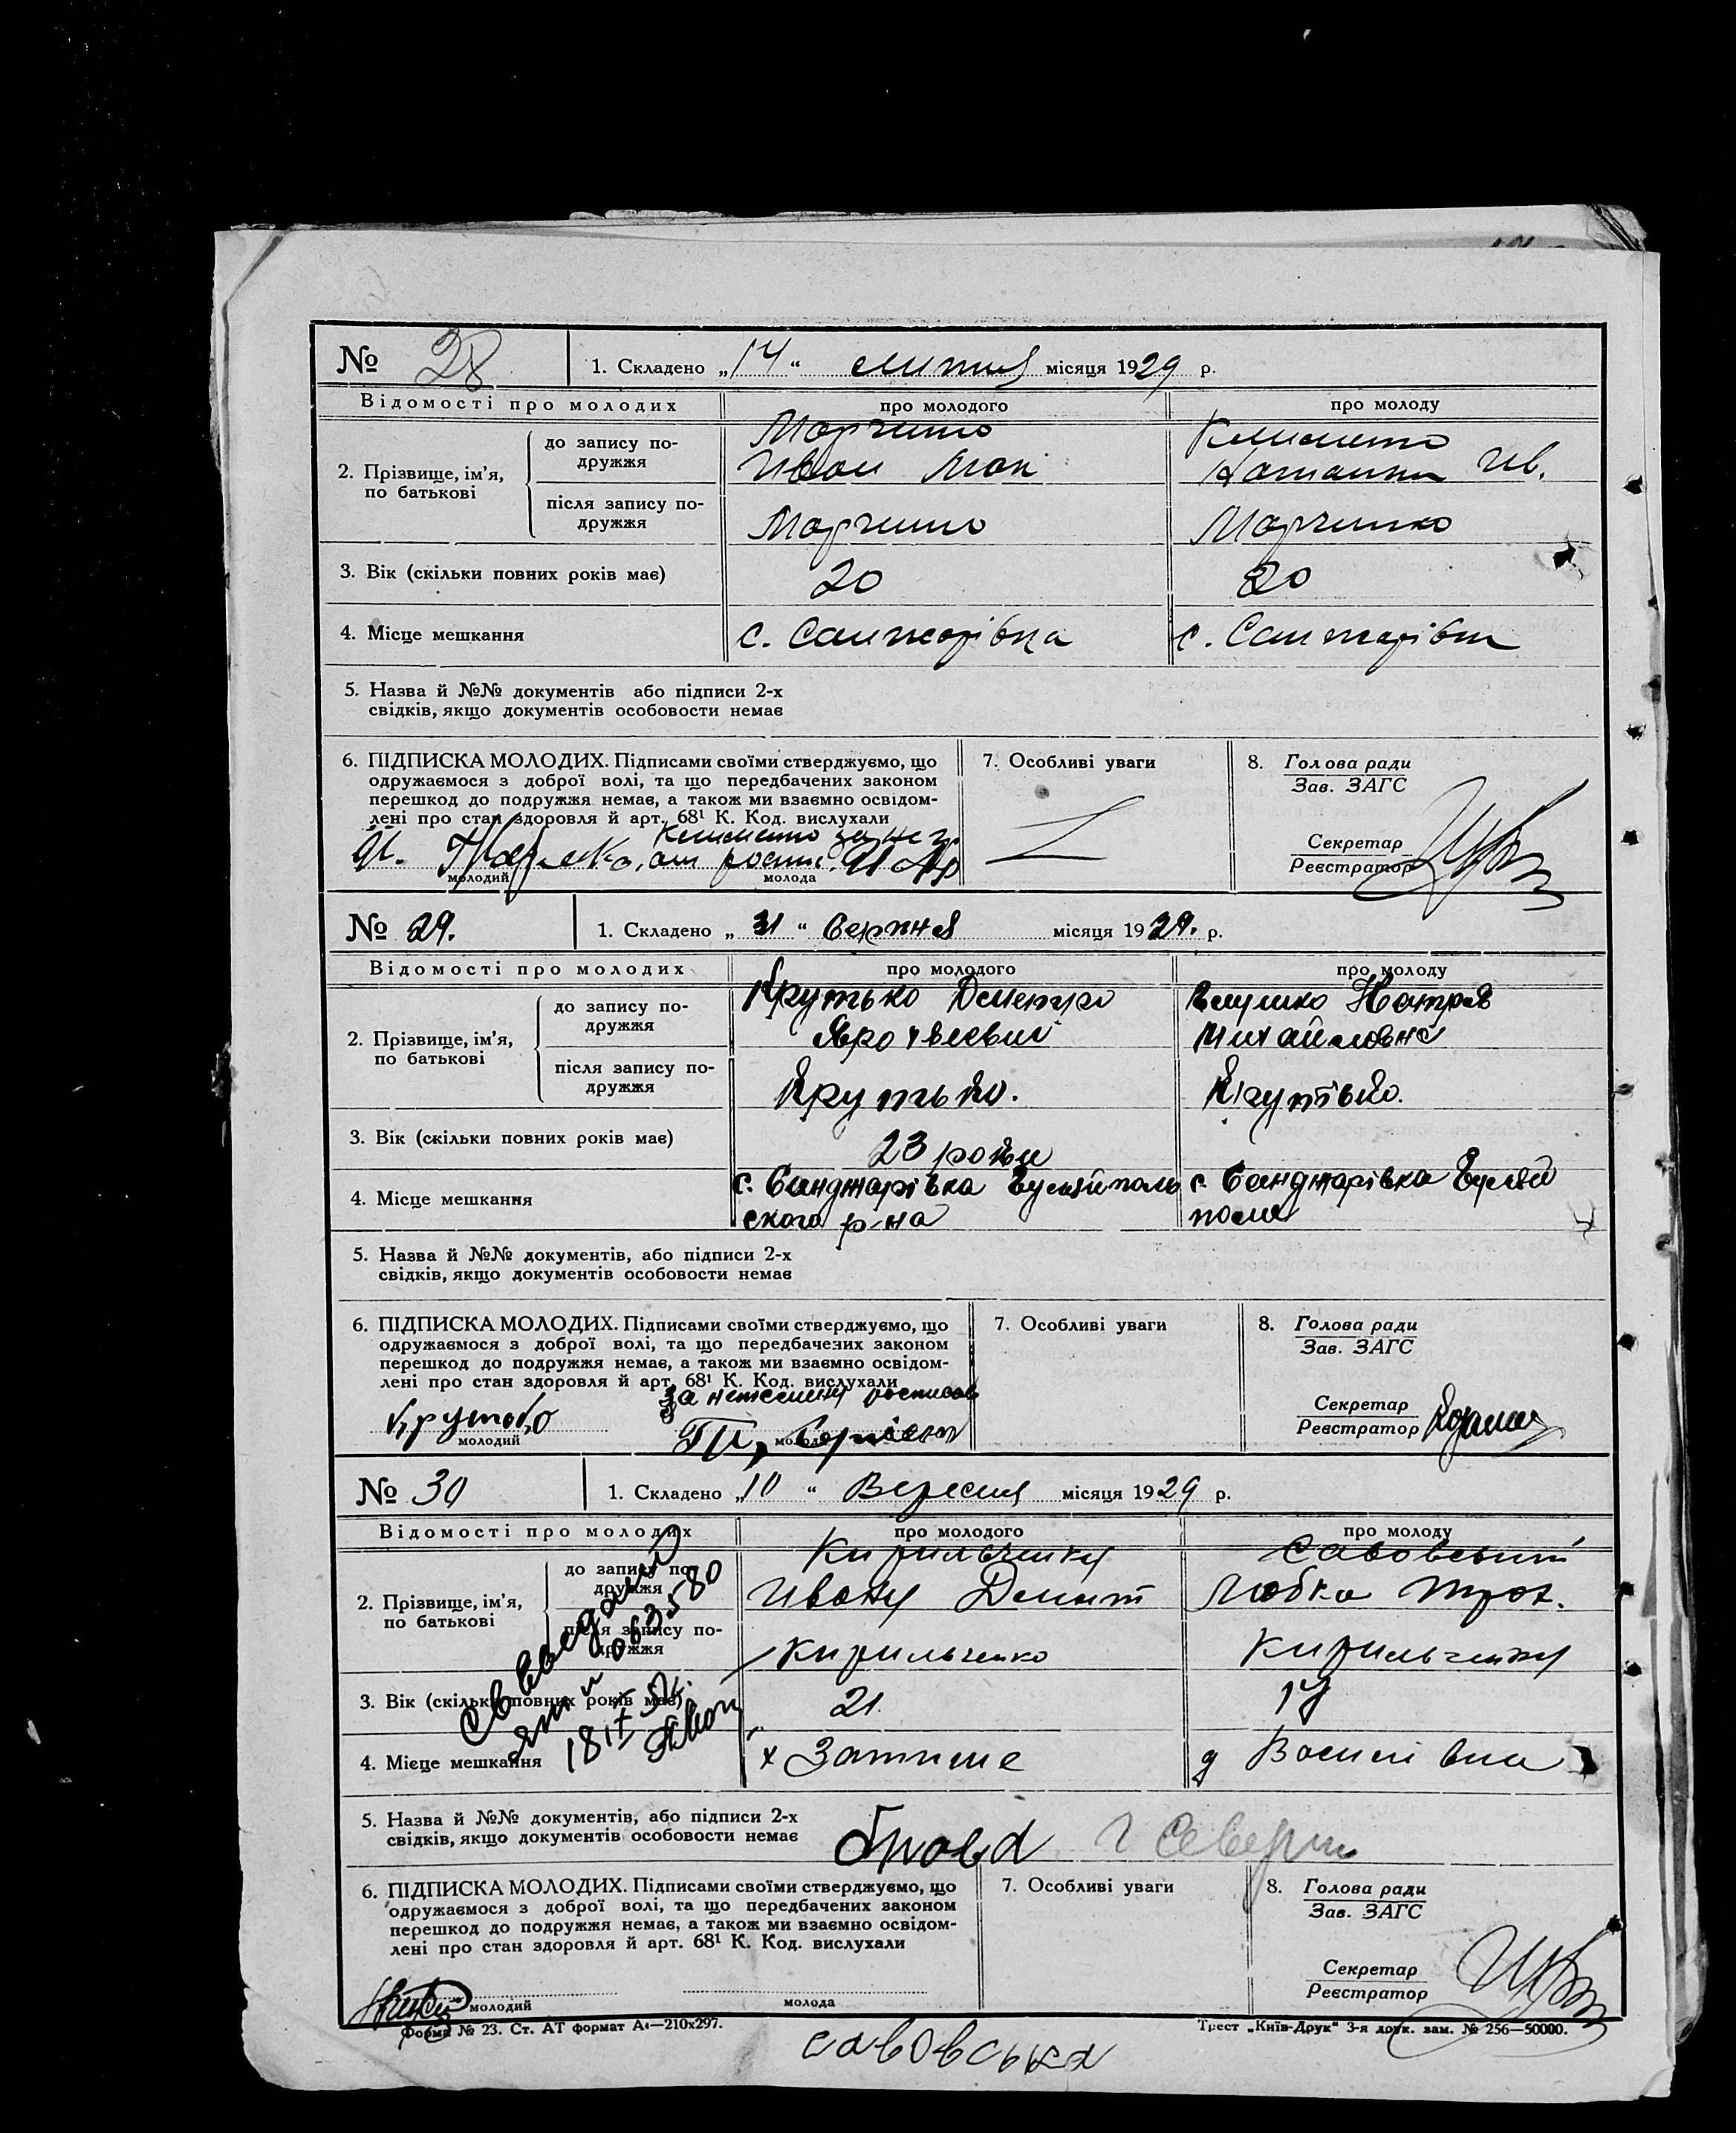 № 28 1. Складено „14“ липня місяця 1929 р.
Відомості про молодих про молодого про молоду
2. Прізвище, ім’я, по батькові
до запису по-
дружжя
Марченко
Иван Мак
Клименко
Ив.
після запису по-
дружжя
Марченко
Марченко
3. Вік (скільки повних років має) 20 20
4. Місце мешкання с. Санжарівка с. Санжарівка
5. Назва й №№ документів або підписи 2-х
свідків, якщо документів особовости немає
6. ПІДПИСКА МОЛОДИХ. Підписами своїми стверджуємо, що
одружаємося з доброї волі, та що передбачених законом
перешкод до подружжя немає, а також ми взаємно освідом-
лені про стан здоровля й арт. 68¹ К. Код. вислухали
Клименко за неї
молодий молода
7. Особливі уваги
8. Голова ради
Зав. ЗАГС
Секретар
Реєстратор
№ 29. 1. Складено „31“ Серпня місяця 1929. р.
Відомості про молодих про молодого про молоду
2. Прізвище, ім’я, по батькові
до запису по-
дружжя
Крутько
Михайловна
після запису по-
дружжя
Крутько.
Крутько.
3. Вік (скільки повних років має) 23 роки
4. Місце мешкання
с. Санджарівка Гуляйполь
ского р-на
с. Санджарівка Гуляй
поле
5. Назва й №№ документів, або підписи 2-х
свідків, якщо документів особовости немає
6. ПІДПИСКА МОЛОДИХ. Підписами своїми стверджуємо, що
одружаємося з доброї волі, та що передбачених законом
перешкод до подружжя немає, а також ми взаємно освідом-
лені про стан здоровля й арт. 68¹ К. Код. вислухали
Крутько
молодий молода
7. Особливі уваги
8. Голова ради
Зав. ЗАГС
Секретар
Реєстратор
№ 30 1. Складено „10“ Вересня місяця 1929 р.
Відомості про молодих про молодого про молоду
2. Прізвище, ім’я, по батькові
до запису по-
дружжя
Кирильченку
Ивану
Любка Троф.
після запису по-
дружжя
Кирильченко
Кирильченку
3. Вік (скільки повних років має) 21
4. Місце мешкання х Затише
5. Назва й №№ документів, або підписи 2-х
свідків, якщо документів особовости немає
6. ПІДПИСКА МОЛОДИХ. Підписами своїми стверджуємо, що
одружаємося з доброї волі, та що передбачених законом
перешкод до подружжя немає, а також ми взаємно освідом-
лені про стан здоровля й арт. 68¹ К. Код. вислухали
молодий молода
7. Особливі уваги
8. Голова ради
Зав. ЗАГС
Секретар
Реєстратор
Форма № 23. Ст. АТ формат А₄—210х297.
Трест „Київ-Друк“ 3-я друк. зам. № 256—50000.
савовська